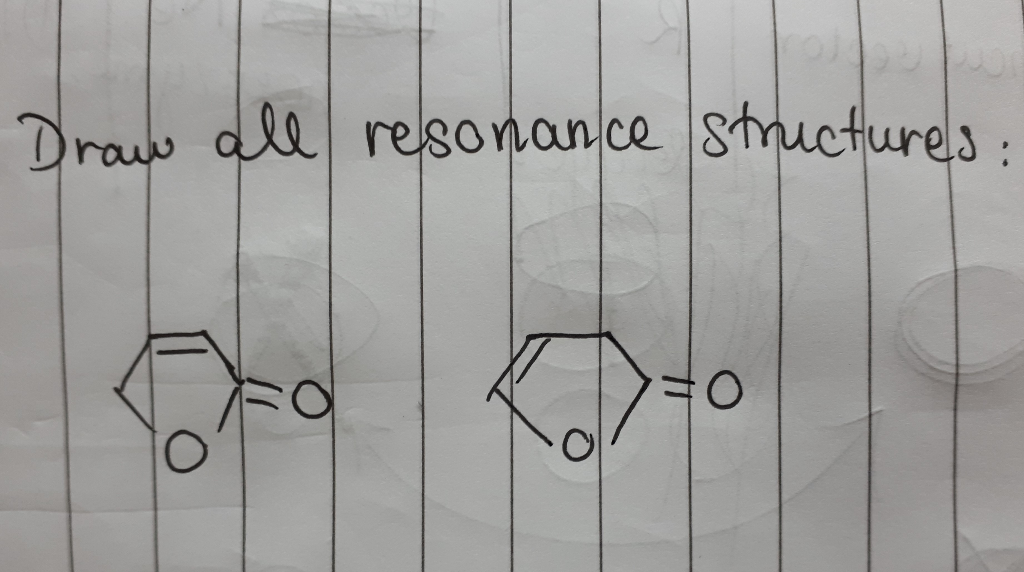 Draw all resonance structures:
O =O O =O